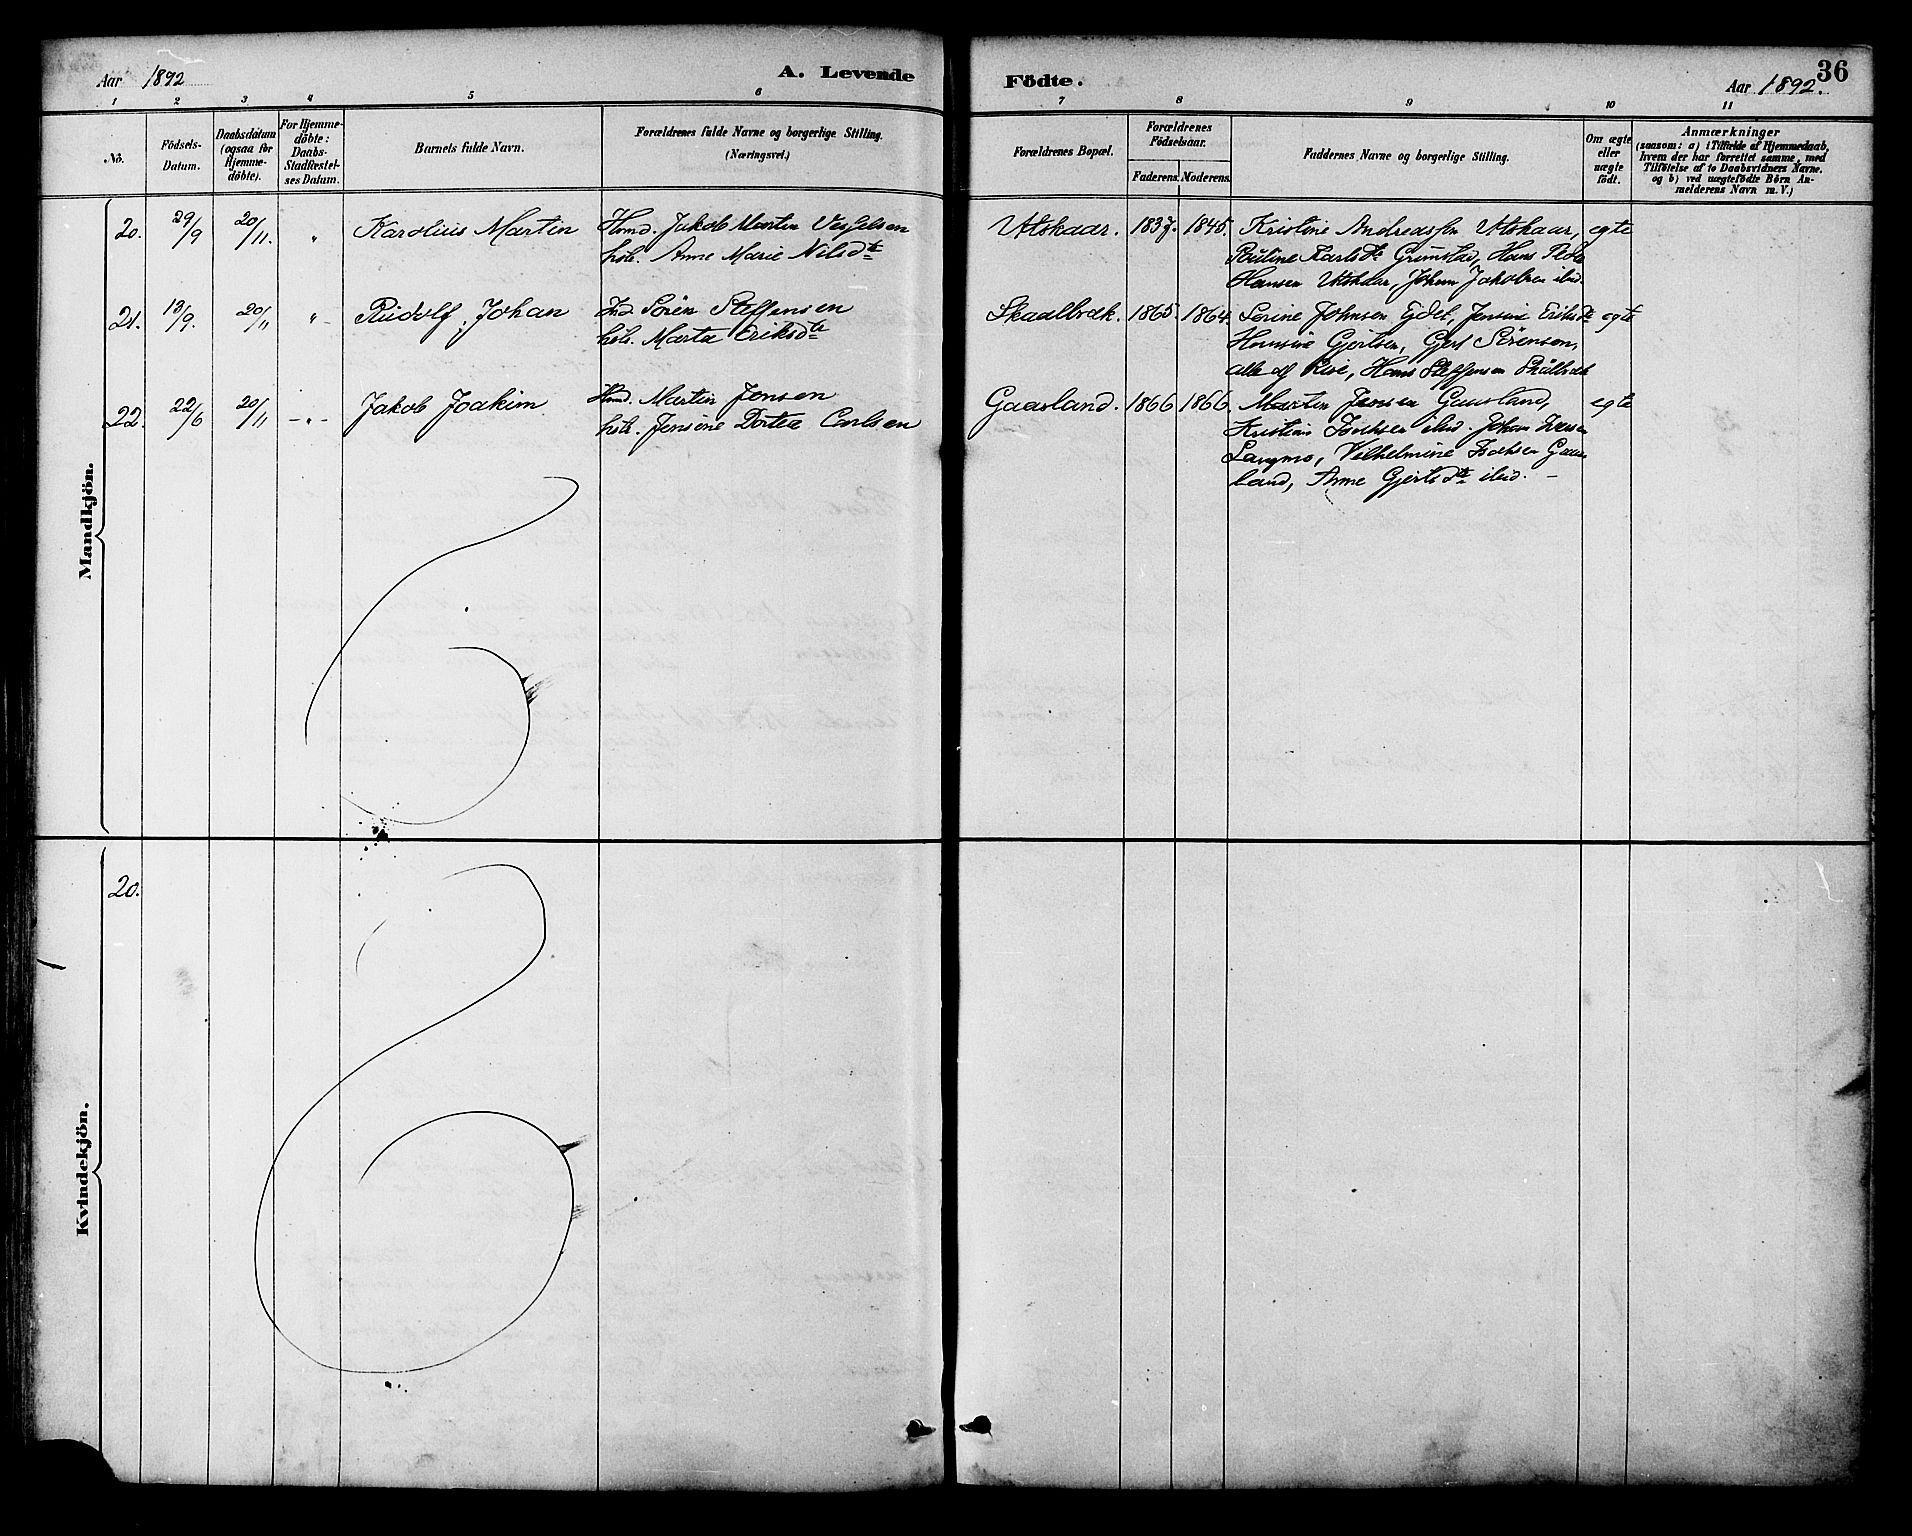 Aar 1892 A. Levende Födte. Aar 1892. 36
1 2 3 4 5 6 7 8 9 10 11
Nö.
Födsels-
Datum.
Daabsdatum
(ogsaa for
Hjemme-
döbte).
For Hjemme-
döbte:
Daabs-
Stadfæstel-
ses Datum.
Barnets fulde Navn.
Forældrenes fulde Navne og borgerlige Stilling.
(Næringsvei.)
Forældrenes Bopæl.
Forældrenes
Födselsaar.
Faderens. Moderens.
Faddernes Navne og borgerlige Stilling.
Om ægte
eller
uægte
födt.
Anmærkninger
(saasom: a) i Tilfælde af Hjemmedaab,
hvem der har forrettet samme, med
Tilföielse af to Daabsvidners Navne.
og b) ved uægtefödte Börn An-
melderens Navn m. V.)
Mandkjön.
20. 29/9 20/11. " Karolius Martin Hmd. Jakob Martin Vesselsen Utskaar. 1837. 1845. Kristine Andreassen Utskaar, egte
hstr. Anne Marie Nilsdtr Pauline Karlsdtr Grimstad, Hans Peder
Hansen Utskaar, Johan Jakobsen ibid.
21. 13/9. 20/11 " Rudolf Johan Ind. Sören Steffensen Skaalbræk. 1865. 1864. Serine Johnsen Eidet, Jensine Eriksdtr egte
hstr. Marta Eriksdtr Hansine Gjertsen, Gjert Sörensen,
alle af Rise, Hans Steffensen Skålbræk
22. 22/6 20/11 - " - Jakob Joakim Hmd. Martin Jensen Gaasland. 1866 1866. Martin Jensen Gaasland, egte
hstr. Jensine Dortea Carlsen Kristian ibid. Johan
Langmo, Vilhelmine Gaas-
land, Anne Gjertsdtr ibid. -
Kvindekjön.
20.